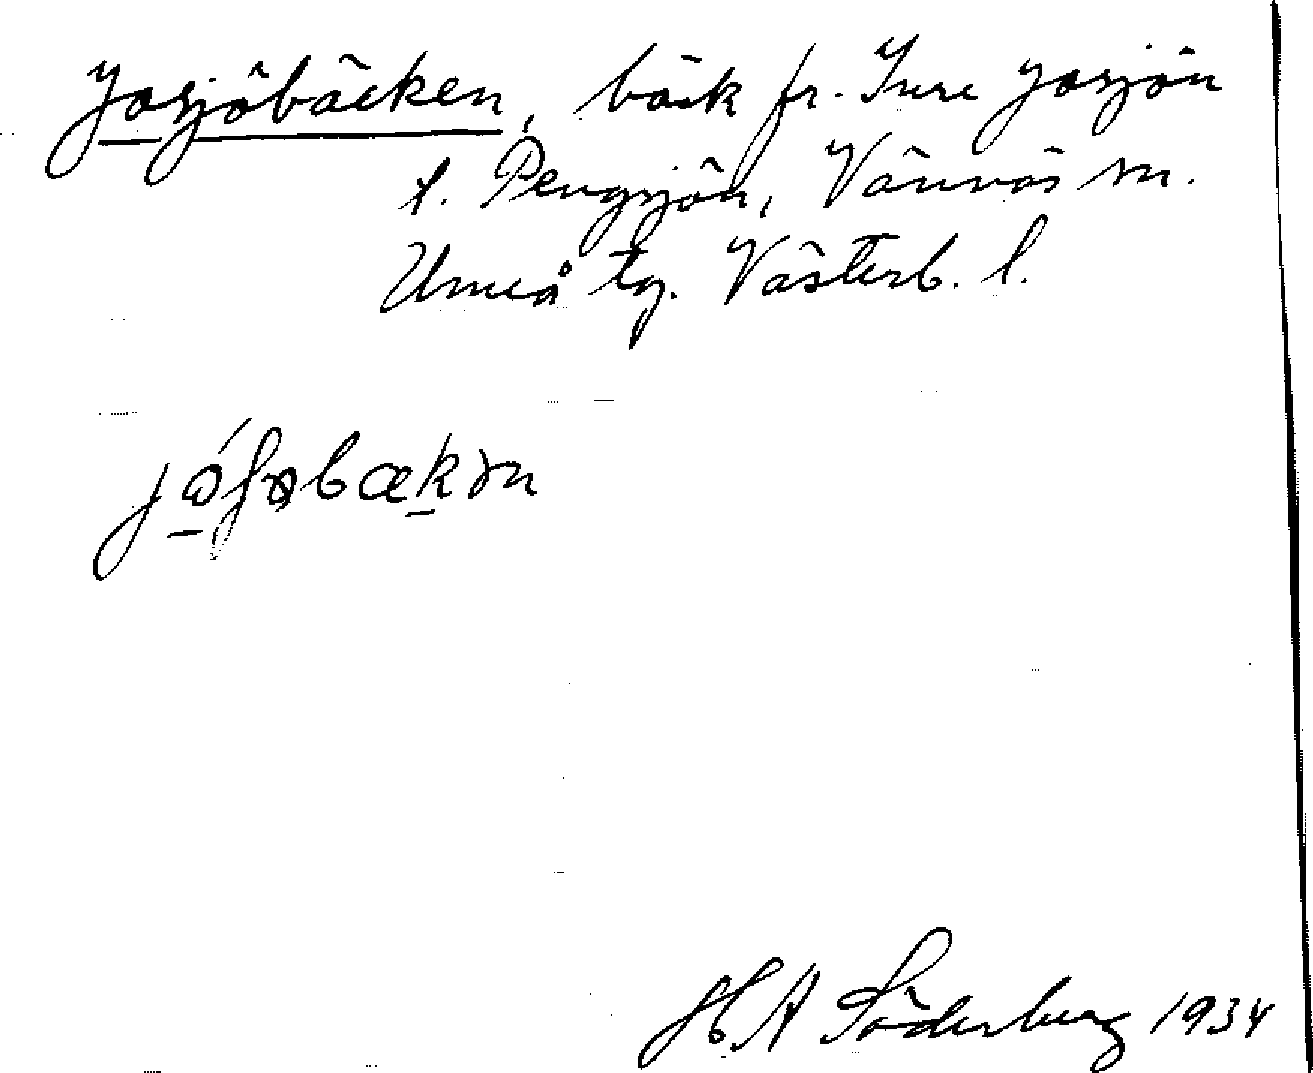 Josjöbäcken, bäck fr. Inre Josjön
t. Pengsjön, Vännäs sn.
Umeå tg. Västerb. l.
H A Söderberg 1934